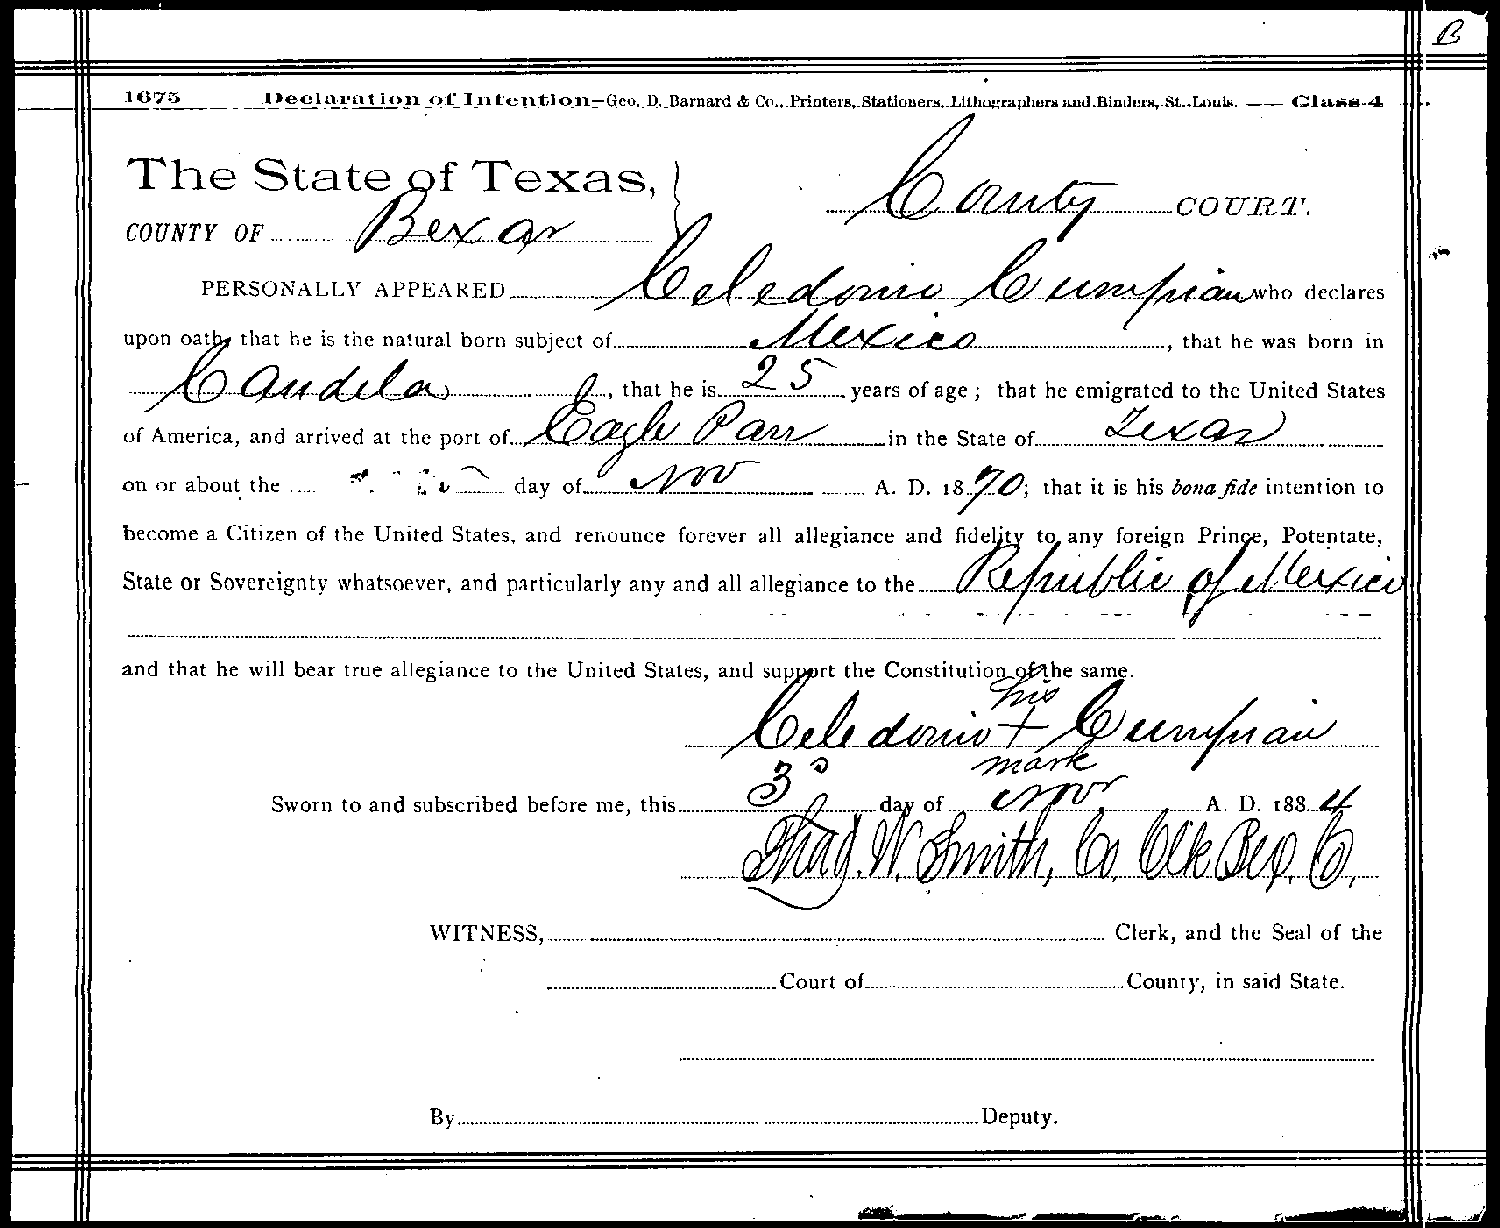 B
1675 Declaration of Intention—Geo. D. Barnard & Co., Printers, Stationers, Lithographers and Binders, St. Louis. —— Class 4
The State of Texas,
County COURT.
COUNTY OF Bexar
PERSONALLY APPEARED Celedonio Cumpian who declares
upon oath, that he is the natural born subject of Mexico, that he was born in
Candela, that he is 25 years of age; that he emigrated to the United States
of America, and arrived at the port of Eagle Pass in the State of Texas
on or about the day of Nov A. D. 1870; that it is his bona fide intention to
become a Citizen of the United States, and renounce forever all allegiance and fidelity to any foreign Prince, Potentate,
State or Sovereignty whatsoever, and particularly any and all allegiance to the Republic of Mexico
and that he will bear true allegiance to the United States, and support the Constitution of the same.
his
Celedonio + Cumpian
mark
Sworn to and subscribed before me, this 3d day of Nov. A. D. 1884
Thad. W. Smith, Co. Clk Bex. C.
WITNESS, Clerk, and the Seal of the
Court of County, in said State.
By Deputy.